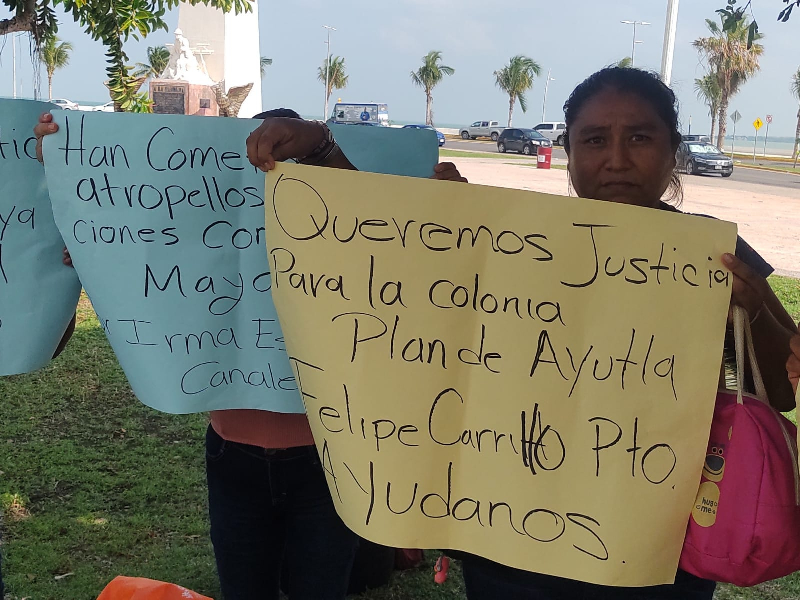 Han Come
atropellos
ciones Con
Mayo
Irma Es
Canale
Queremos Justicia
Para la colonia
Plan de Ayutla
Felipe Carrillo Pto.
Ayudanos.
hug
me